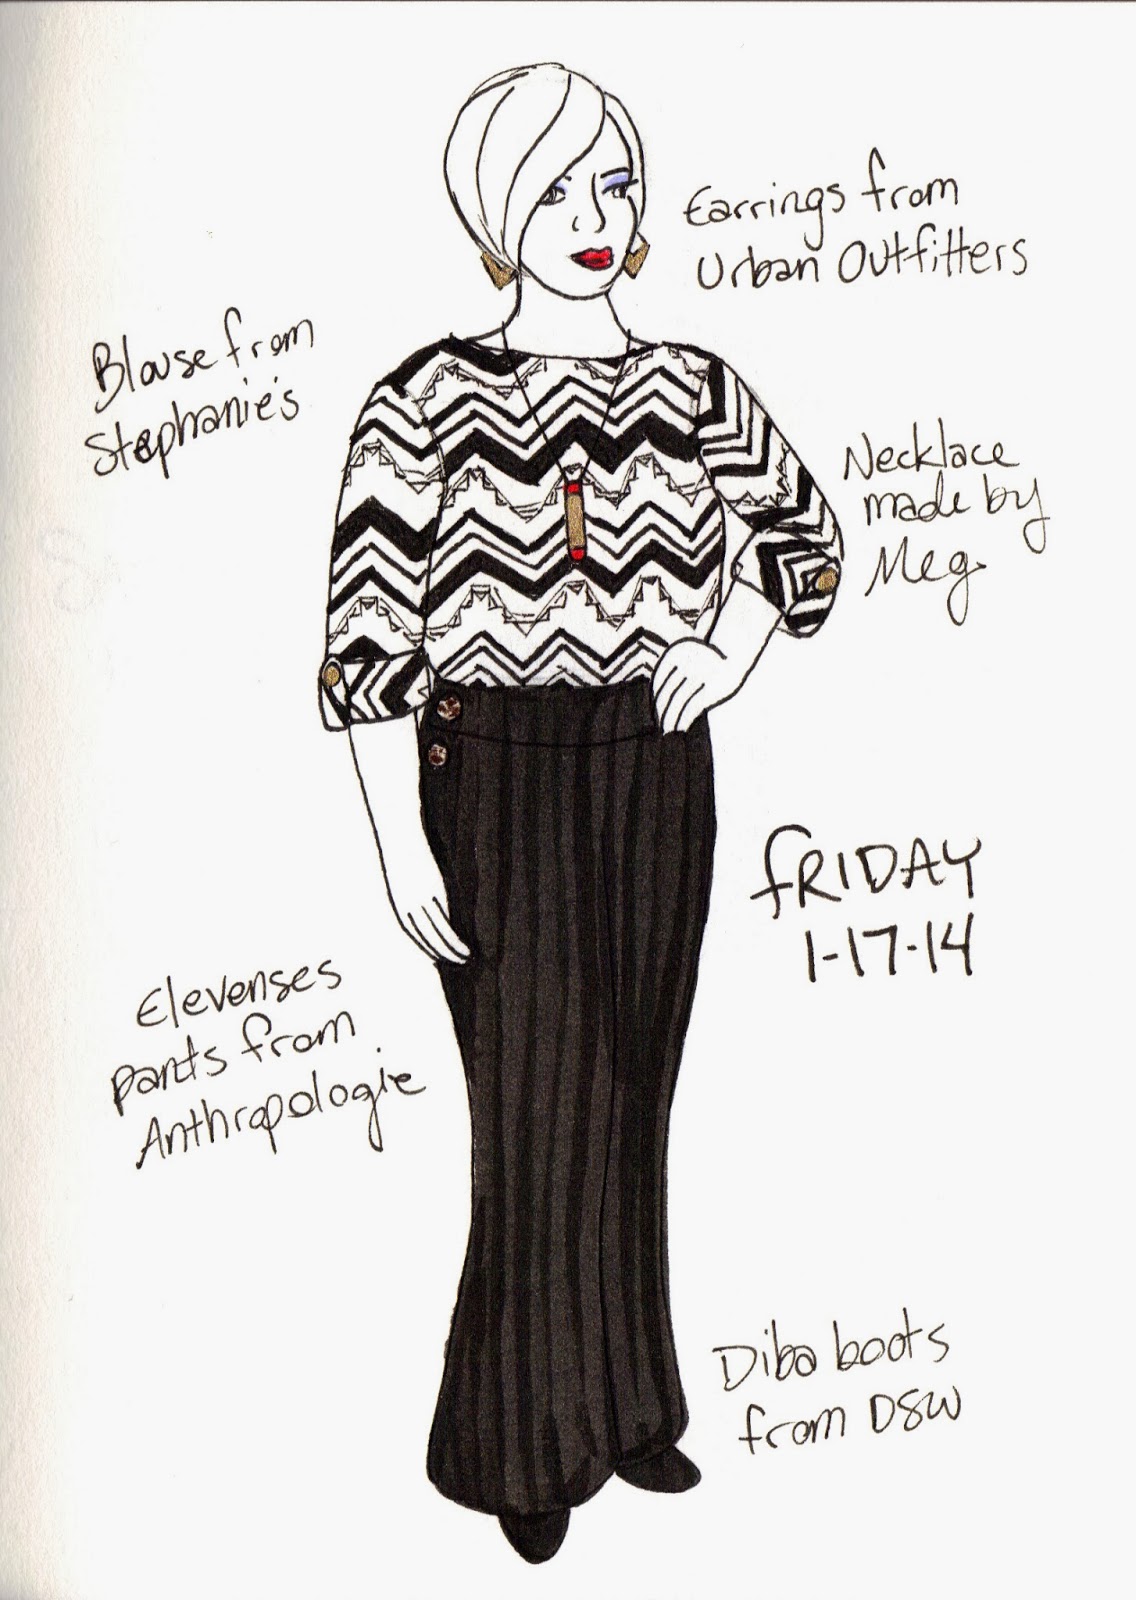 Earrings from
Urban Outfitters
Blouse from
Stephanie's
Necklace
made by
Meg.
FRIDAY
1-17-14
Elevenses
pants from
Anthropologie
Diba boots
from DSW